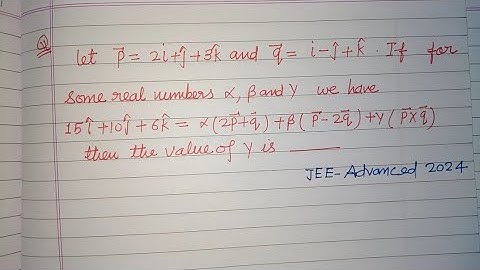 Q let p⃗ = 2î+ĵ+3k̂ and q⃗ = i-ĵ+k̂. If for
some real numbers α, β and γ we have
15î+10ĵ+6k̂ = α(2p⃗+q⃗)+β(p⃗-2q⃗)+γ(p⃗×q⃗)
then the value of γ is ______
JEE-Advanced 2024